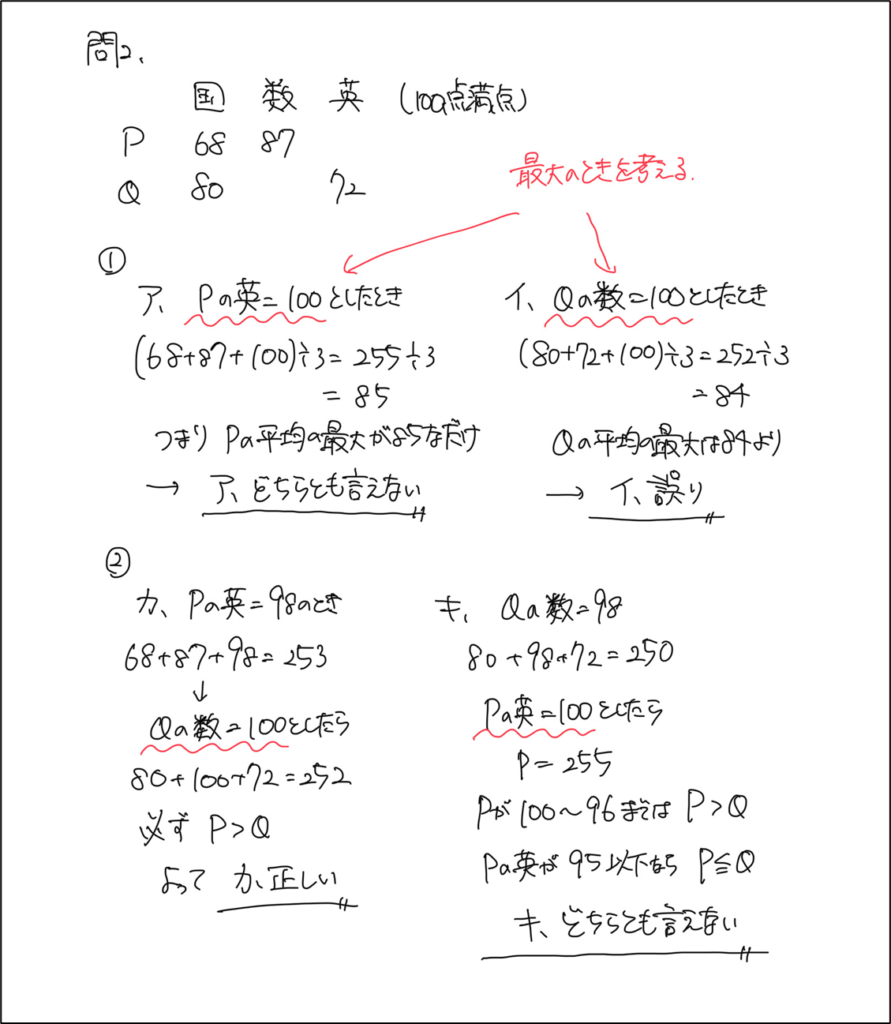 問2、
国 数 英 (100点満点)
P 68 87
Q 80 72
最大のときを考える.
①
ア、Pの英=100としたとき
(68+87+100)÷3=255÷3
=85
つまりPの平均の最大が85なだけ
→ ア、どちらとも言えない
イ、Qの数=100としたとき
(80+72+100)÷3=252÷3
=84
Qの平均の最大は84より
→ イ、誤り
②
カ、Pの英=98のとき
68+87+98=253
↓
Qの数=100としたら
80+100+72=252
必ず P>Q
よって カ、正しい
キ、Qの数=98
80+98+72=250
Pの英=100としたら
P=255
Pが100~96までは P>Q
Pの英が95以下なら P≦Q
キ、どちらとも言えない